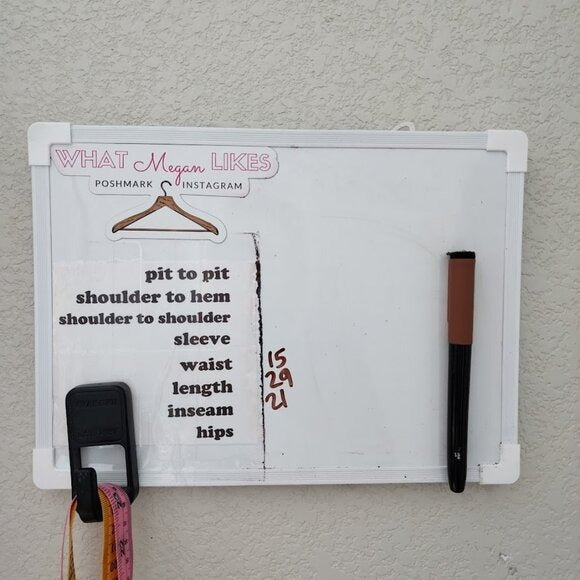 WHAT Megan LIKES
POSHMARK INSTAGRAM
pit to pit
shoulder to hem
shoulder to shoulder
sleeve
waist 15
length 29
inseam 21
hips